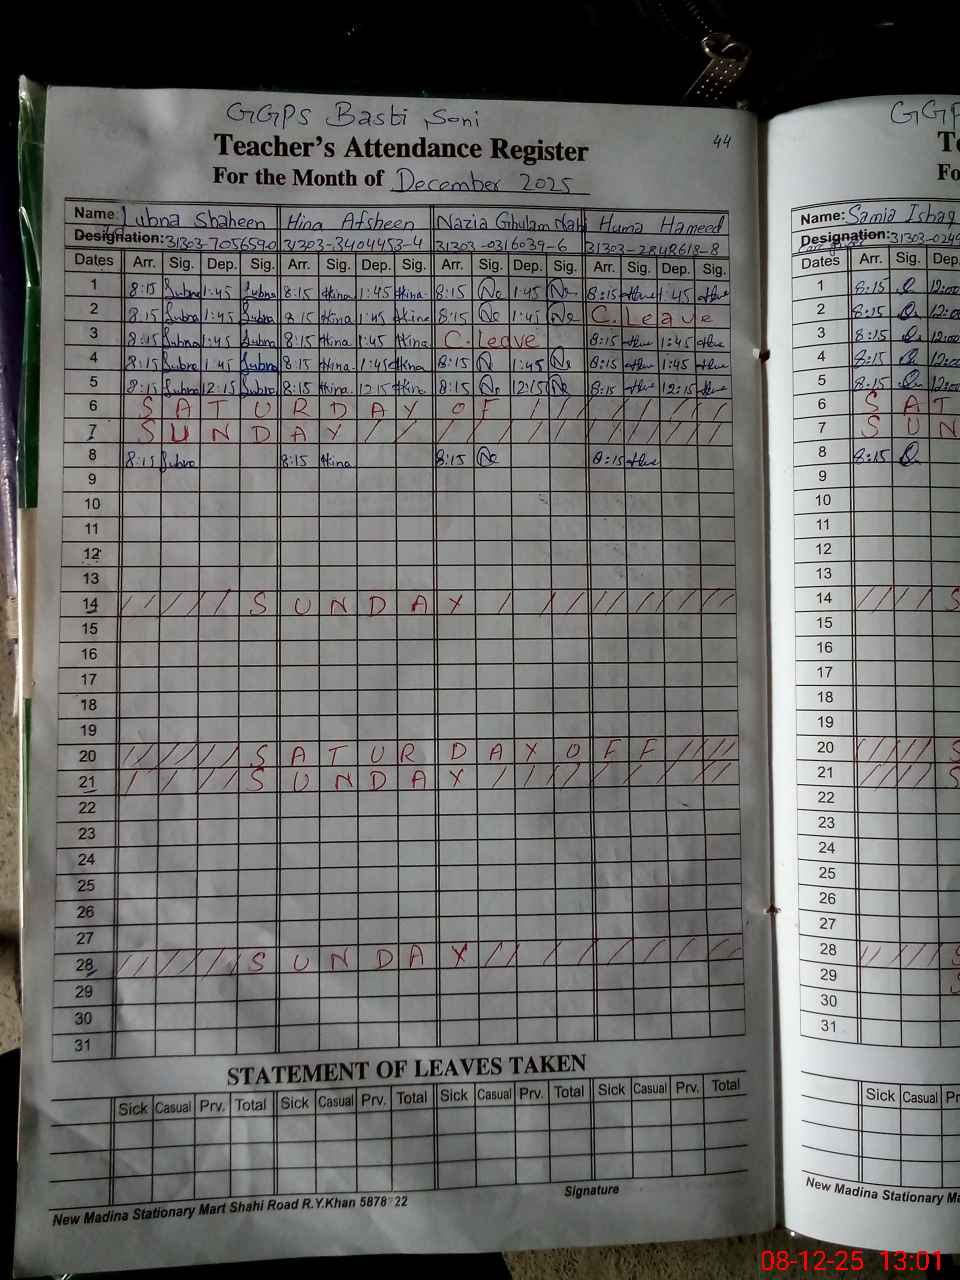 GGPS Basti Soni
Teacher's Attendance Register 44
For the Month of December 2025
Name: Lubna Shaheen Hina Afsheen Nazia Ghulam Nabi Huma Hameed
Designation: 31303-7056590 31303-3404453-4 31303-0316039-6 31303-2848618-8
Dates Arr. Sig. Dep. Sig. Arr. Sig. Dep. Sig. Arr. Sig. Dep. Sig. Arr. Sig. Dep. Sig.
1 8:15 Lubna 1:45 Lubna 8:15 Hina 1:45 Hina 8:15 1:45 8:15 1:45
2 8:15 Lubna 1:45 Lubna 8:15 Hina 1:45 Hina 8:15 1:45 C. Leave
3 8:15 Lubna 1:45 Lubna 8:15 Hina 1:45 Hina C. Leave 8:15 1:45
4 8:15 Lubna 1:45 Lubna 8:15 Hina 1:45 Hina 8:15 1:45 8:15 1:45
5 8:15 Lubna 12:15 Lubna 8:15 Hina 12:15 Hina 8:15 12:15 8:15 12:15
6 SATURDAY OF
7 SUNDAY
8 8:15 Lubna 8:15 Hina 8:15 8:15
9
10
11
12
13
14 SUNDAY
15
16
17
18
19
20 SATURDAY OFF
21 SUNDAY
22
23
24
25
26
27
28 SUNDAY
29
30
31
STATEMENT OF LEAVES TAKEN
Sick Casual Prv. Total Sick Casual Prv. Total Sick Casual Prv. Total Sick Casual Prv. Total
Signature
New Madina Stationary Mart Shahi Road R.Y.Khan
GGP
Name: Samia Ishaq
Designation: 31303-024
Dates Arr. Sig. Dep.
1 8:15 12:00
2 8:15 12:00
3 8:15 12:00
4 8:15 12:00
5 8:15 12:00
6 SAT
7 SUN
8 8:15
9
10
11
12
13
14 S
15
16
17
18
19
20 S
21 S
22
23
24
25
26
27
28 S
29
30
31
Sick Casual Prv.
New Madina Stationary Ma
08-12-25 13:01